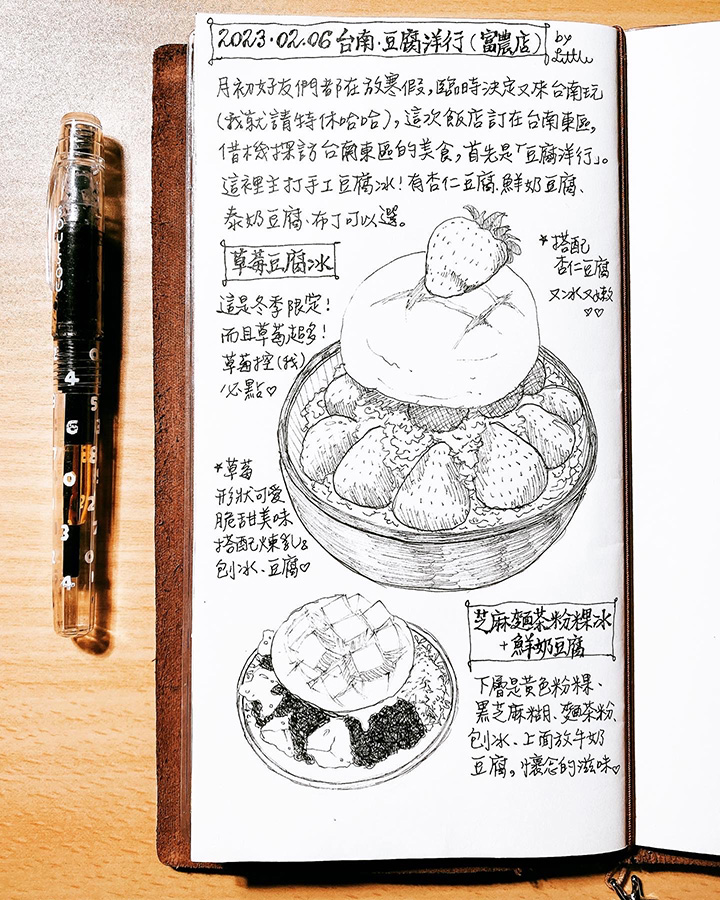 2023.02.06 台南.豆腐洋行(富農店)
by
Little
月初好友們都在放寒假,臨時決定又來台南玩
(我就請特休哈哈),這次飯店訂在台南東區,
借機探訪台南東區的美食,首先是「豆腐洋行」。
這裡主打手工豆腐冰!有杏仁豆腐、鮮奶豆腐、
泰奶豆腐、布丁可以選。
草莓豆腐冰
*搭配
杏仁豆腐
又冰又嫩
♡♡
這是冬季限定!
而且草莓超多!
草莓控(我)
必點♡
*草莓
形狀可愛
脆甜美味
搭配煉乳&
刨冰、豆腐♡
芝麻麵茶粉粿冰
+鮮奶豆腐
下層是黃色粉粿、
黑芝麻糊、麵茶粉、
刨冰、上面放牛奶
豆腐,懷念的滋味♡
0
4
5
6
8
0
2
3
4